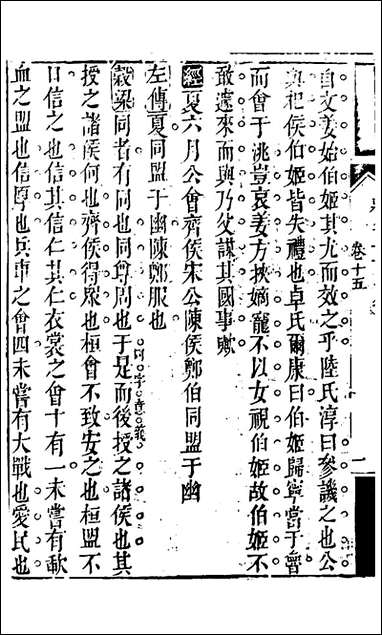 卷十五
自文姜始伯姬其尤而效之乎陸氏淳曰參譏之也公
與杞侯伯姬皆失禮也卓氏爾康曰伯姬歸寧當于魯
而會于洮豈哀姜方挾嫡寵不以女視伯姬故伯姬不
敢遠來而與乃父謀其國事歟
經夏六月公會齊侯宋公陳侯鄭伯同盟于幽
左傳夏同盟于幽陳鄭服也
穀梁同者有同也同尊周也于是而後授之諸侯也其
授之諸侯何也齊侯得衆也桓會不致安之也桓盟不
日信之也信其信仁其仁衣裳之會十有一未嘗有歃
血之盟也信厚也兵車之會四未嘗有大戰也愛民也